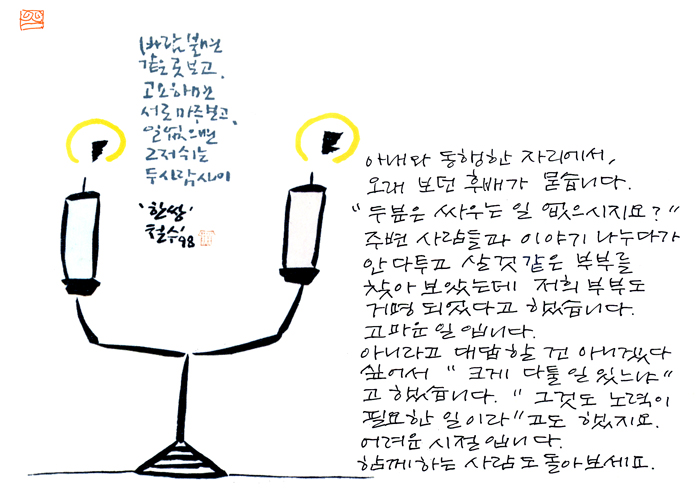 바람 불면
같은 곳 보고,
고요하면
서로 마주보고,
일 없으면
그저 쉬는
두 사람 사이
'한쌍'
철수 '98
아내와 동행한 자리에서,
오래 보던 후배가 묻습니다.
"두분은 싸우는 일 없으시지요?"
주변 사람들과 이야기 나누다가
안 다투고 살 것 같은 부부를
찾아 보았는데 저희 부부도
거명 되었다고 했습니다.
고마운 일 입니다.
아니라고 대답할 건 아니겠다
싶어서 "크게 다툴 일 있느냐"
고 했습니다. "그것도 노력이
필요한 일이라"고도 했지요.
어려운 시절 입니다.
함께하는 사람도 돌아보세요.